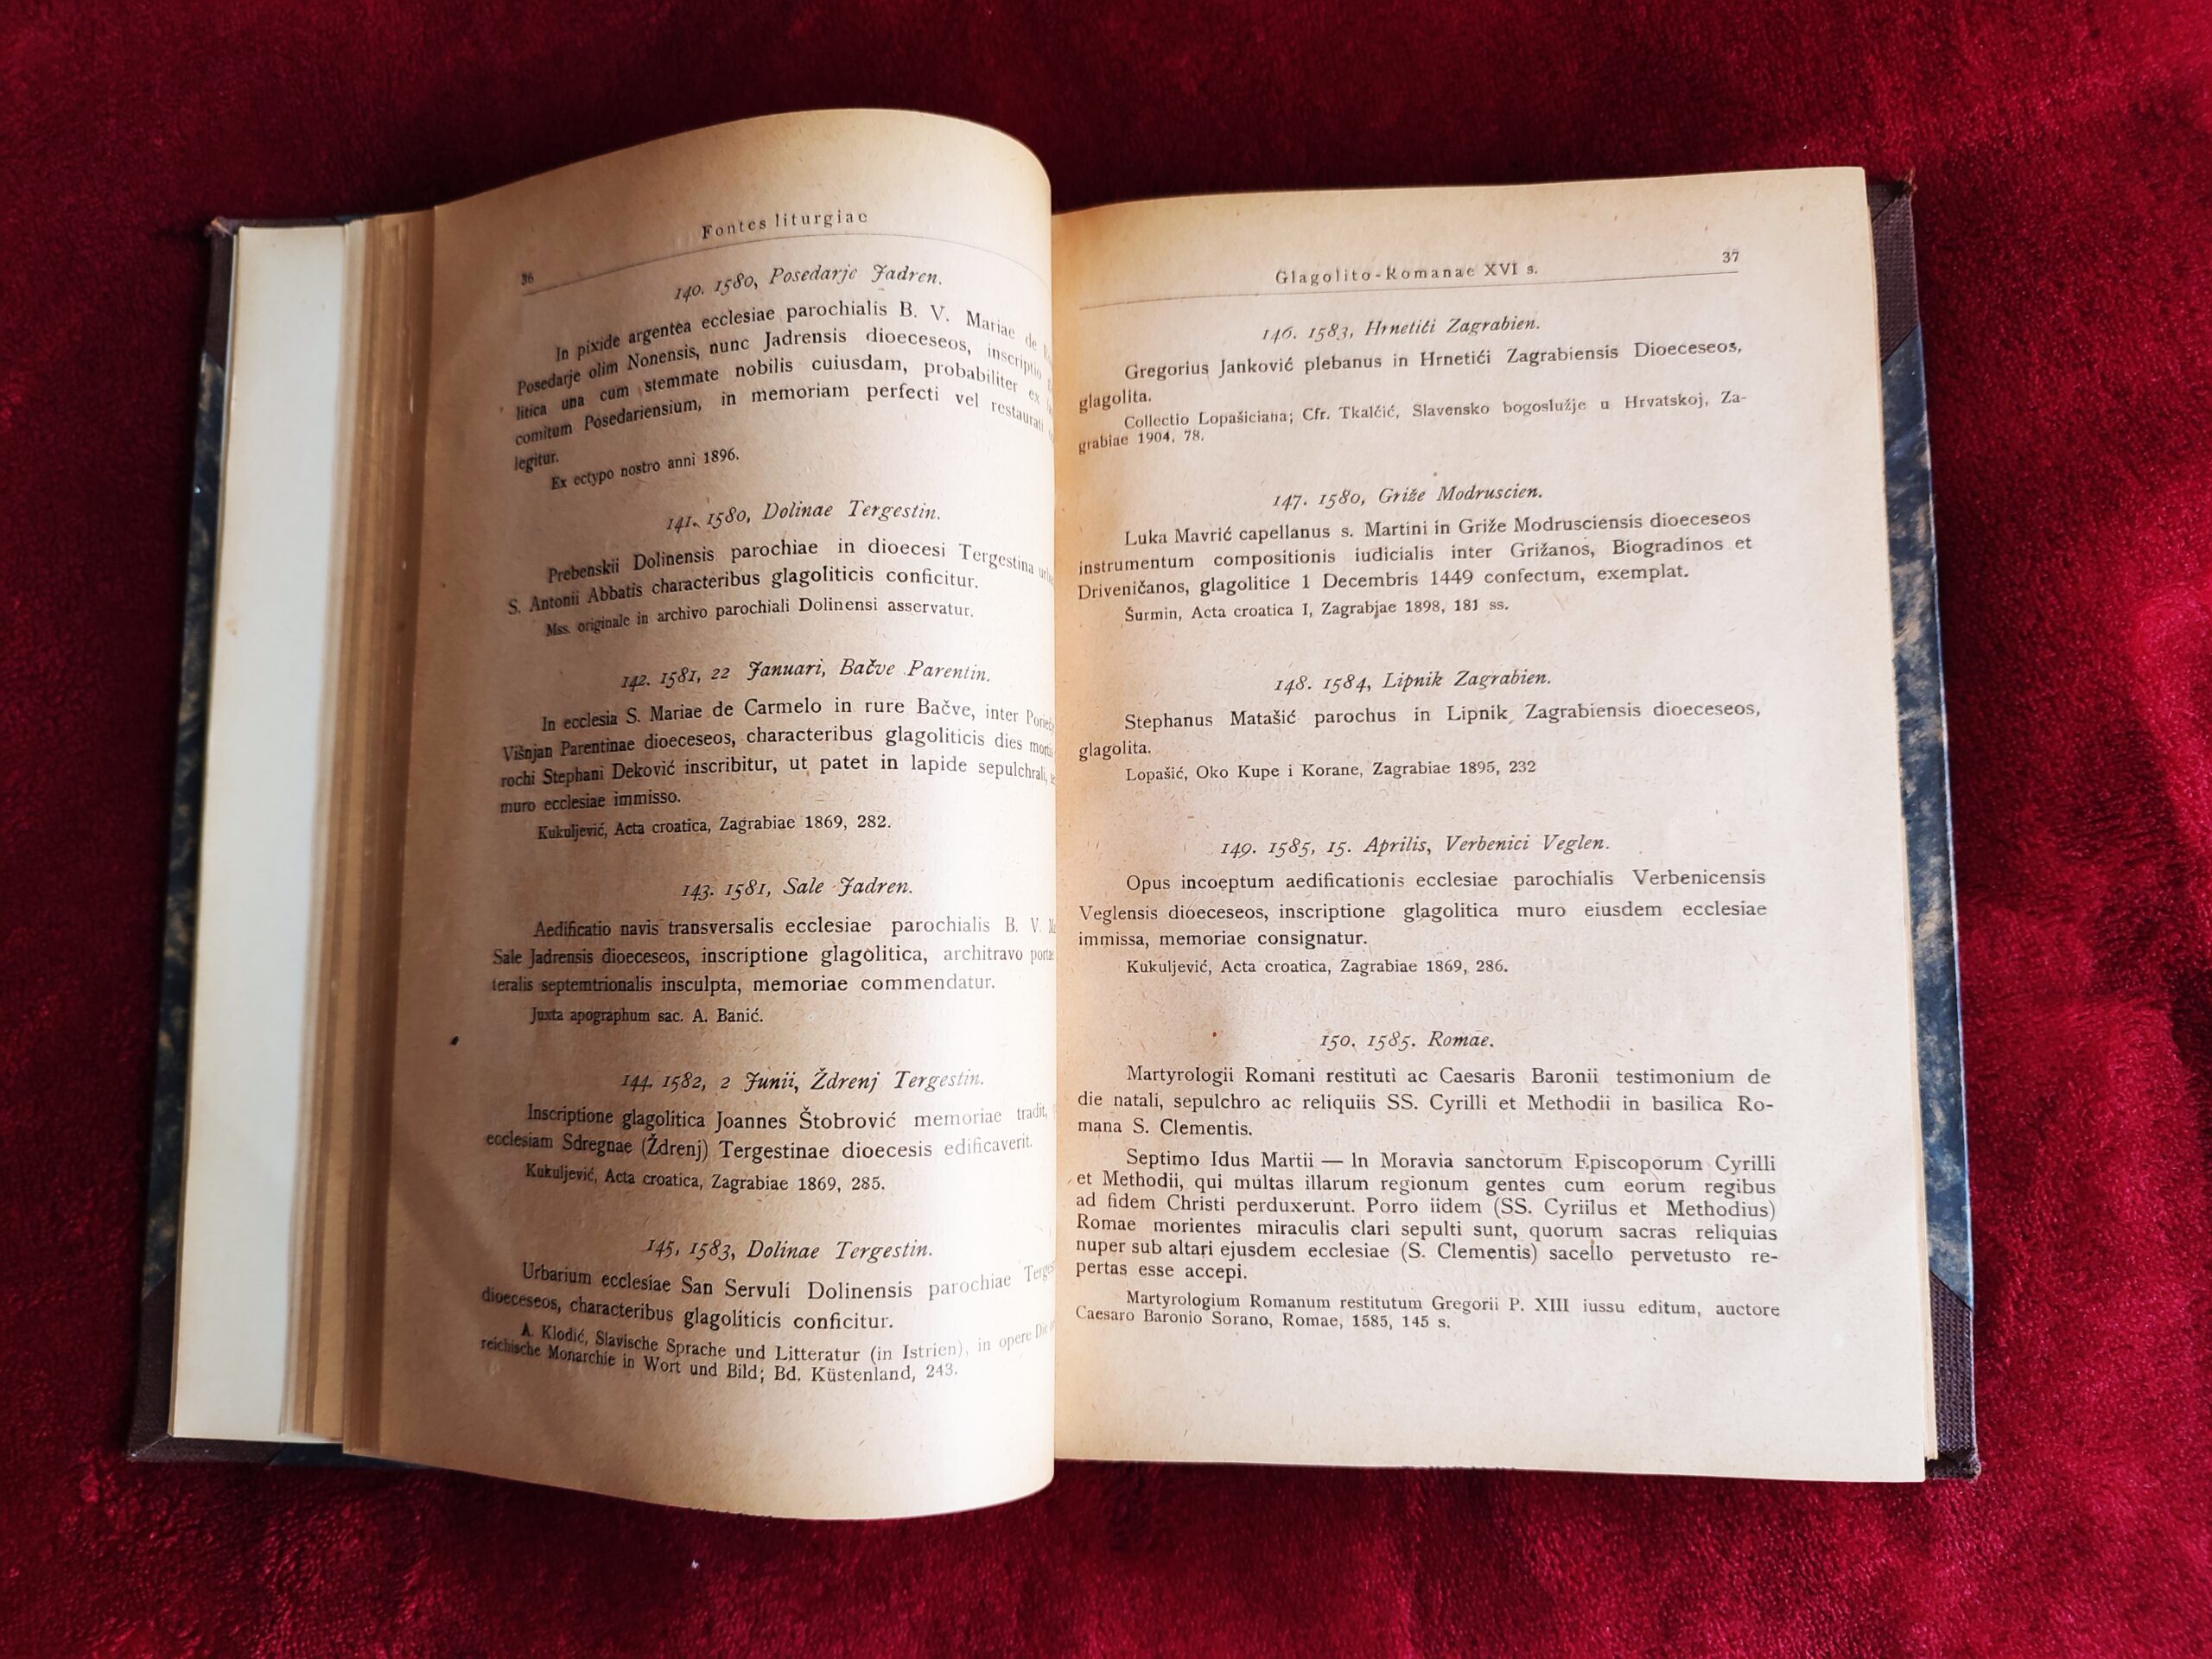 36
Fontes liturgiae
140. 1580, Posedarje Jadren.
In pixide argentea ecclesiae parochialis B. V. Mariae de
Posedarje olim Nonensis, nunc Jadrensis dioeceseos, inscriptio
litica una cum stemmate nobilis cuiusdam, probabiliter ex
comitum Posedariensium, in memoriam perfecti vel restaurati
legitur.
Ex ectypo nostro anni 1896.
141. 1580, Dolinae Tergestin.
Prebenskii Dolinensis parochiae in dioecesi Tergestina
S. Antonii Abbatis characteribus glagoliticis conficitur.
Mss. originale in archivo parochiali Dolinensi asservatur.
142. 1581, 22 Januari, Bačve Parentin.
In ecclesia S. Mariae de Carmelo in rure Bačve, inter
Višnjan Parentinae dioeceseos, characteribus glagoliticis dies
rochi Stephani Deković inscribitur, ut patet in lapide sepulchrali,
muro ecclesiae immisso.
Kukuljević, Acta croatica, Zagrabiae 1869, 282.
143. 1581, Sale Jadren.
Aedificatio navis transversalis ecclesiae parochialis B. V.
Sale Jadrensis dioeceseos, inscriptione glagolitica, architravo
teralis septemtrionalis insculpta, memoriae commendatur.
Juxta apographum sac. A. Banić.
144. 1582, 2 Junii, Ždrenj Tergestin.
Inscriptione glagolitica Joannes Štobrović memoriae tradit,
ecclesiam Sdregnae (Ždrenj) Tergestinae dioecesis edificaverit.
Kukuljević, Acta croatica, Zagrabiae 1869, 285.
145, 1583, Dolinae Tergestin.
Urbarium ecclesiae San Servuli Dolinensis parochiae
dioeceseos, characteribus glagoliticis conficitur.
A. Klodić, Slavische Sprache und Litteratur (in Istrien), in opere
reichische Monarchie in Wort und Bild; Bd. Küstenland, 243.
Glagolito-Romanae XVI s.
37
146. 1583, Hrnetići Zagrabien.
Gregorius Janković plebanus in Hrnetići Zagrabiensis Dioeceseos,
glagolita.
Collectio Lopašiciana; Cfr. Tkalčić, Slavensko bogoslužje u Hrvatskoj, Za-
grabiae 1904, 78.
147. 1580, Griže Modruscien.
Luka Mavrić capellanus s. Martini in Griže Modrusciensis dioeceseos
instrumentum compositionis iudicialis inter Grižanos, Biogradinos et
Driveničanos, glagolitice 1 Decembris 1449 confectum, exemplat.
Šurmin, Acta croatica I, Zagrabjae 1898, 181 ss.
148. 1584, Lipnik Zagrabien.
Stephanus Matašić parochus in Lipnik Zagrabiensis dioeceseos,
glagolita.
Lopašić, Oko Kupe i Korane, Zagrabiae 1895, 232
149. 1585, 15. Aprilis, Verbenici Veglen.
Opus incoeptum aedificationis ecclesiae parochialis Verbenicensis
Veglensis dioeceseos, inscriptione glagolitica muro eiusdem ecclesiae
immissa, memoriae consignatur.
Kukuljević, Acta croatica, Zagrabiae 1869, 286.
150. 1585. Romae.
Martyrologii Romani restituti ac Caesaris Baronii testimonium de
die natali, sepulchro ac reliquiis SS. Cyrilli et Methodii in basilica Ro-
mana S. Clementis.
Septimo Idus Martii — In Moravia sanctorum Episcoporum Cyrilli
et Methodii, qui multas illarum regionum gentes cum eorum regibus
ad fidem Christi perduxerunt. Porro iidem (SS. Cyriilus et Methodius)
Romae morientes miraculis clari sepulti sunt, quorum sacras reliquias
nuper sub altari ejusdem ecclesiae (S. Clementis) sacello pervetusto re-
pertas esse accepi.
Martyrologium Romanum restitutum Gregorii P. XIII iussu editum, auctore
Caesaro Baronio Sorano, Romae, 1585, 145 s.